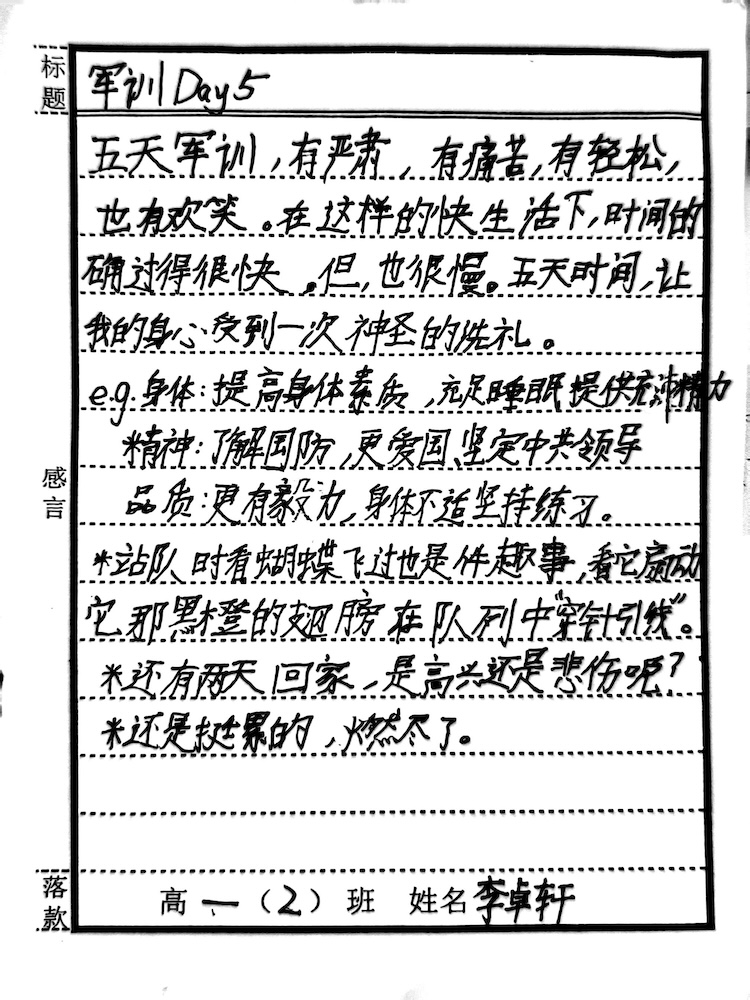 标题
军训Day5
五天军训,有严肃,有痛苦,有轻松,
也有欢笑。在这样的快生活下,时间的
确过得很快。但,也很慢。五天时间,让
我的身心受到一次神圣的洗礼。
e.g.身体:提高身体素质,充足睡眠提供充沛精力
精神:了解国防,更爱国、坚定中共领导
品质:更有毅力,身体不适坚持练习。
感言
*站队时看蝴蝶飞过也是件趣事,看它扇动
它那黑橙的翅膀在队列中"穿针引线"。
*还有两天回家,是高兴还是悲伤呢?
*还是挺累的,燃尽了。
落款
高一(2)班 姓名李卓轩